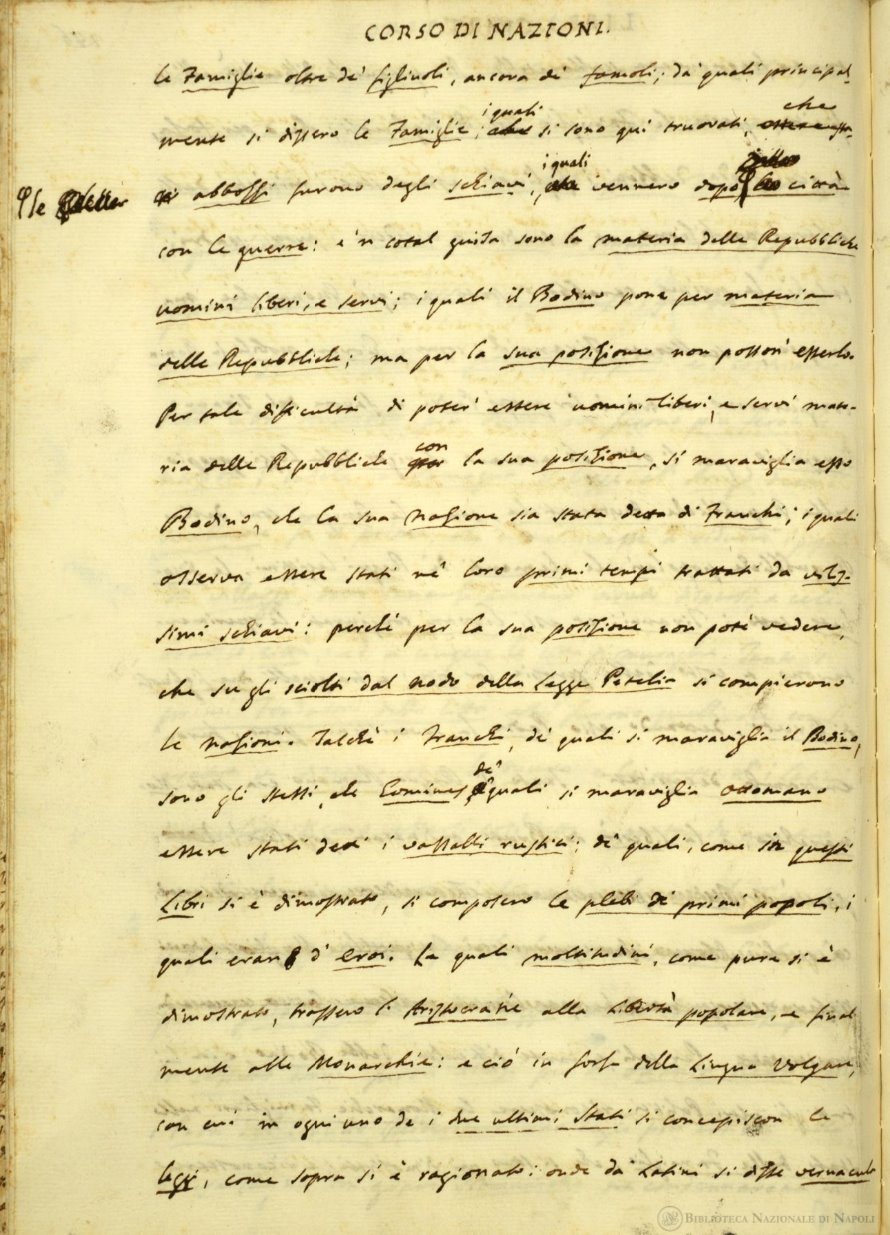 CORSO DI NAZIONI.
le Famiglie oltre de' figliuoli, ancora de' famoli; da' quali principal-
mente si dissero le Famiglie; i quali si sono qui truovati, che
abbossi furono degli schiavi, i quali vennero dopo le città
con le guerre: e 'n cotal guisa sono la materia delle Repubbliche
uomini liberi, e servi; i quali il Bodino pone per materia
delle Repubbliche; ma per la sua posizione non posson' esserlo.
Per tale difficultà di poter' essere uomini liberi, e servi mate-
ria delle Repubbliche con la sua posizione, si maraviglia esso
Bodino, che la sua nazione sia stata detta di Franchi; i quali
osserva essere stati ne' loro primi tempi trattati da vilis-
simi schiavi: perchè per la sua posizione non potè vedere,
che su gli sciolti dal nodo della Legge Petelia si compierono
le nazioni. Talchè i Franchi, de' quali si maraviglia il Bodino,
sono gli stessi, che Homines, de' quali si maraviglia Ottomano
essere stati detti i vassalli rustici; de' quali, come in questi
Libri si è dimostrato, si composero le plebi de' primi popoli, i
quali eran d' eroi. Le quali moltitudini, come pure si è
dimostrato, trassero l' Aristocratie alla Libertà popolare, e final-
mente alle Monarchie: e ciò in forza della Lingua Volgare,
con cui in ogni uno de i due ultimi Stati si concepiscon le
leggi, come sopra si è ragionato: onde da' Latini si disse vernacula
le
BIBLIOTECA NAZIONALE DI NAPOLI